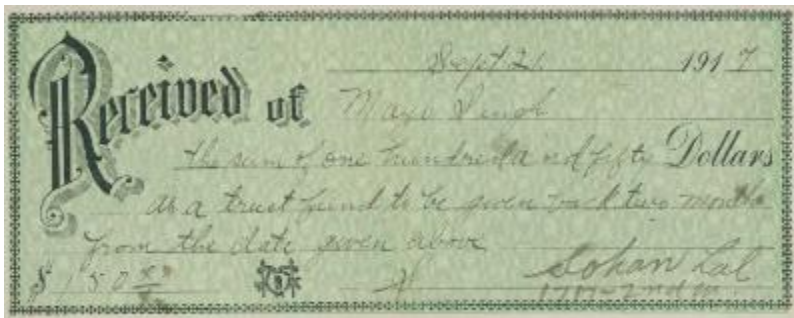 Sept 21 1917
Received of Maya Singh
the sum of one hundred and fifty Dollars
as a trust fund to be given back two months
from the date given above
$150
Sohan Lal